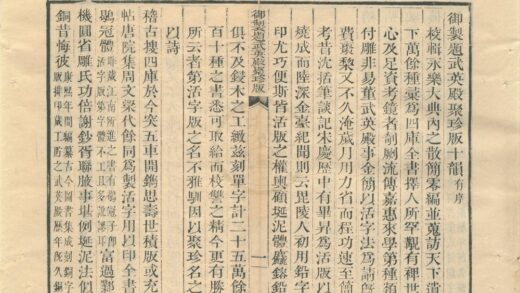 御製題武英殿聚珍版十韻有序
校輯永樂大典內之散簡零編並蒐訪天下遺
下萬餘種彙爲四庫全書擇人所罕覯有裨世
心及足資考鏡者剞劂流傳嘉惠來學第種類
付雕非易董武英殿事金簡以活字法爲請
費棗棃又不久淹歲月用力省而程功速至簡
考昔沈括筆談記宋慶歷中有畢昇爲活版以
燒成而陸深金臺紀聞則云毘陵人初用鉛字
印尤巧便斯皆活版之權輿顧埏泥體麤鎔鉛
御製題武英殿聚珍版 一
俱不及鋟木之工緻茲刻單字計二十五萬餘
百十種之書悉可取給而校讐之精今更有勝
所云者第活字版之名不雅馴因以聚珍名之
以詩
稽古搜四庫於今突五車開鐫思壽世積版或充
帖唐院集周文梁代餘同爲製活字用以印全書
鶡冠體昨歲江南所進之書有鶡冠子即活字版第字體不工且多訛謬耳富過鄴
機圓省雕氏功倍謝鈔胥聯腋事堪例埏泥法似
銅昔悔彼康熙年間編纂古今圖書集成刻銅字版排印蕆工貯之武英殿歷年既久銅